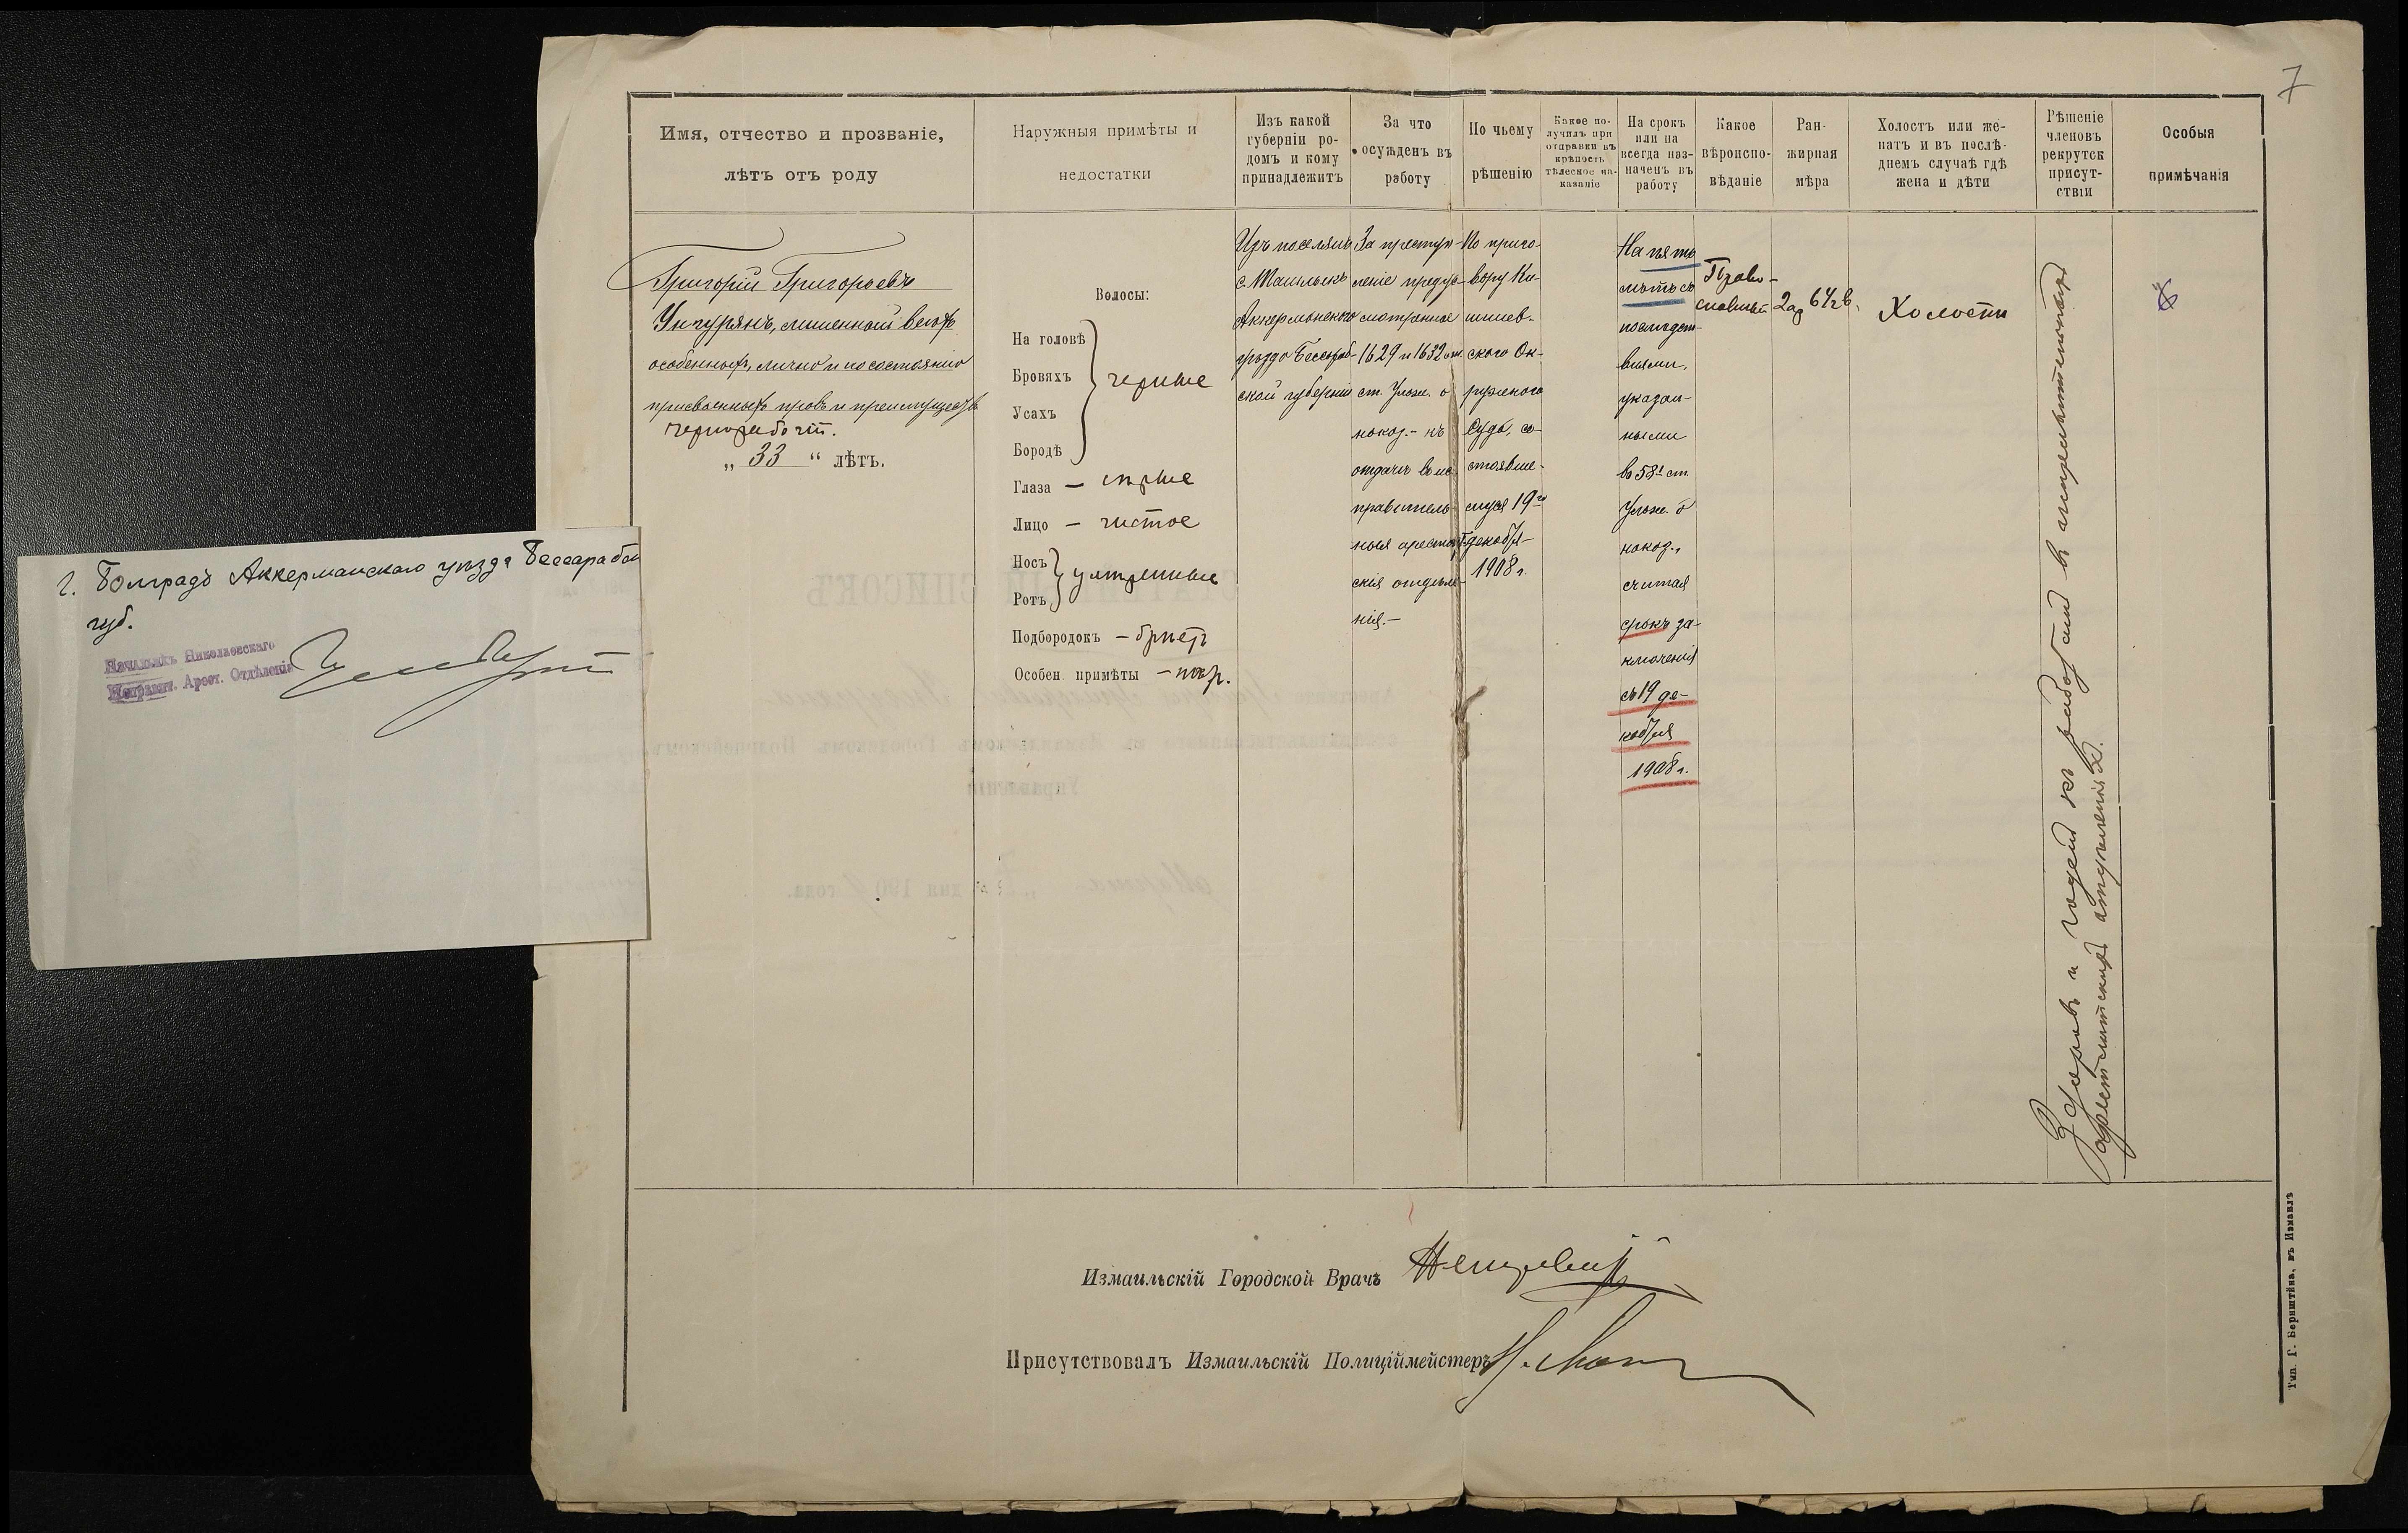 7
Имя, отчество и прозваніе,
лѣтъ отъ роду
Наружныя примѣты и
недостатки
Изъ какой
губерніи ро-
домъ и кому
принадлежитъ
За что
осужденъ въ
работу
По чьему
рѣшенію
Какое по-
лучилъ при
отправки въ
крѣпость
тѣлесное на-
казаніе
На срокъ
или на
всегда наз-
наченъ въ
работу
Какое
вѣроиспо-
вѣданіе
Ран-
жирная
мѣра
Холостъ или же-
натъ и въ послѣ-
днемъ случаѣ гдѣ
жена и дѣти
Рѣшеніе
членовъ
рекрутск
присут-
ствіи
Особыя
примѣчанія
Григорій Григорьевъ
Унгурянъ, лишенный всѣхъ
особенныхъ, лично и по состоянію
присвоенныхъ правъ и преимуществъ
чернорабочій.
„ 33 “ лѣтъ.
Волосы:
На головѣ
Бровяхъ
Усахъ
Бородѣ
черные
Глаза — сѣрые
Лицо — чистое
Носъ
Ротъ
умѣренные
Подбородокъ — брѣетъ
Особен. примѣты —
Изъ поселянъ
с. Ташлыкъ
Аккерманскаго
уѣзда Бессараб-
ской губерніи
За преступ-
леніе преду-
смотрѣнное
1629 и 1632 ст.
ст. Улож. о
наказ. - къ
отдачѣ въ ис-
правитель-
ныя арестант-
скія отдѣле-
нія. -
По приго-
вору Ки-
шинев-
скаго Ок-
ружнаго
Суда, со-
стоявше-
муся 19го
декабря
1908 г.
На пять
лѣтъ съ
послѣдст-
віями,
указан-
ными
въ 581 ст.
Улож. о
наказ.,
считая
срокъ за-
ключенія
съ 19 де-
кабря
1908 г.
Право-
славный
2 ар 6 1/2 в.
Холостъ
Здоровъ и годенъ къ работамъ въ исправительныхъ
арестантскихъ отдѣленіяхъ.
г. Болградъ Аккерманскаго уѣзда Бессарабск
губ.
Начальникъ Николаевскаго
Исправит. Арест. Отдѣленія
Измаильскій Городской Врачъ
Присутствовалъ Измаильскій Полиціймейстеръ
Тип. Г. Бернштейна, въ Измаилѣ